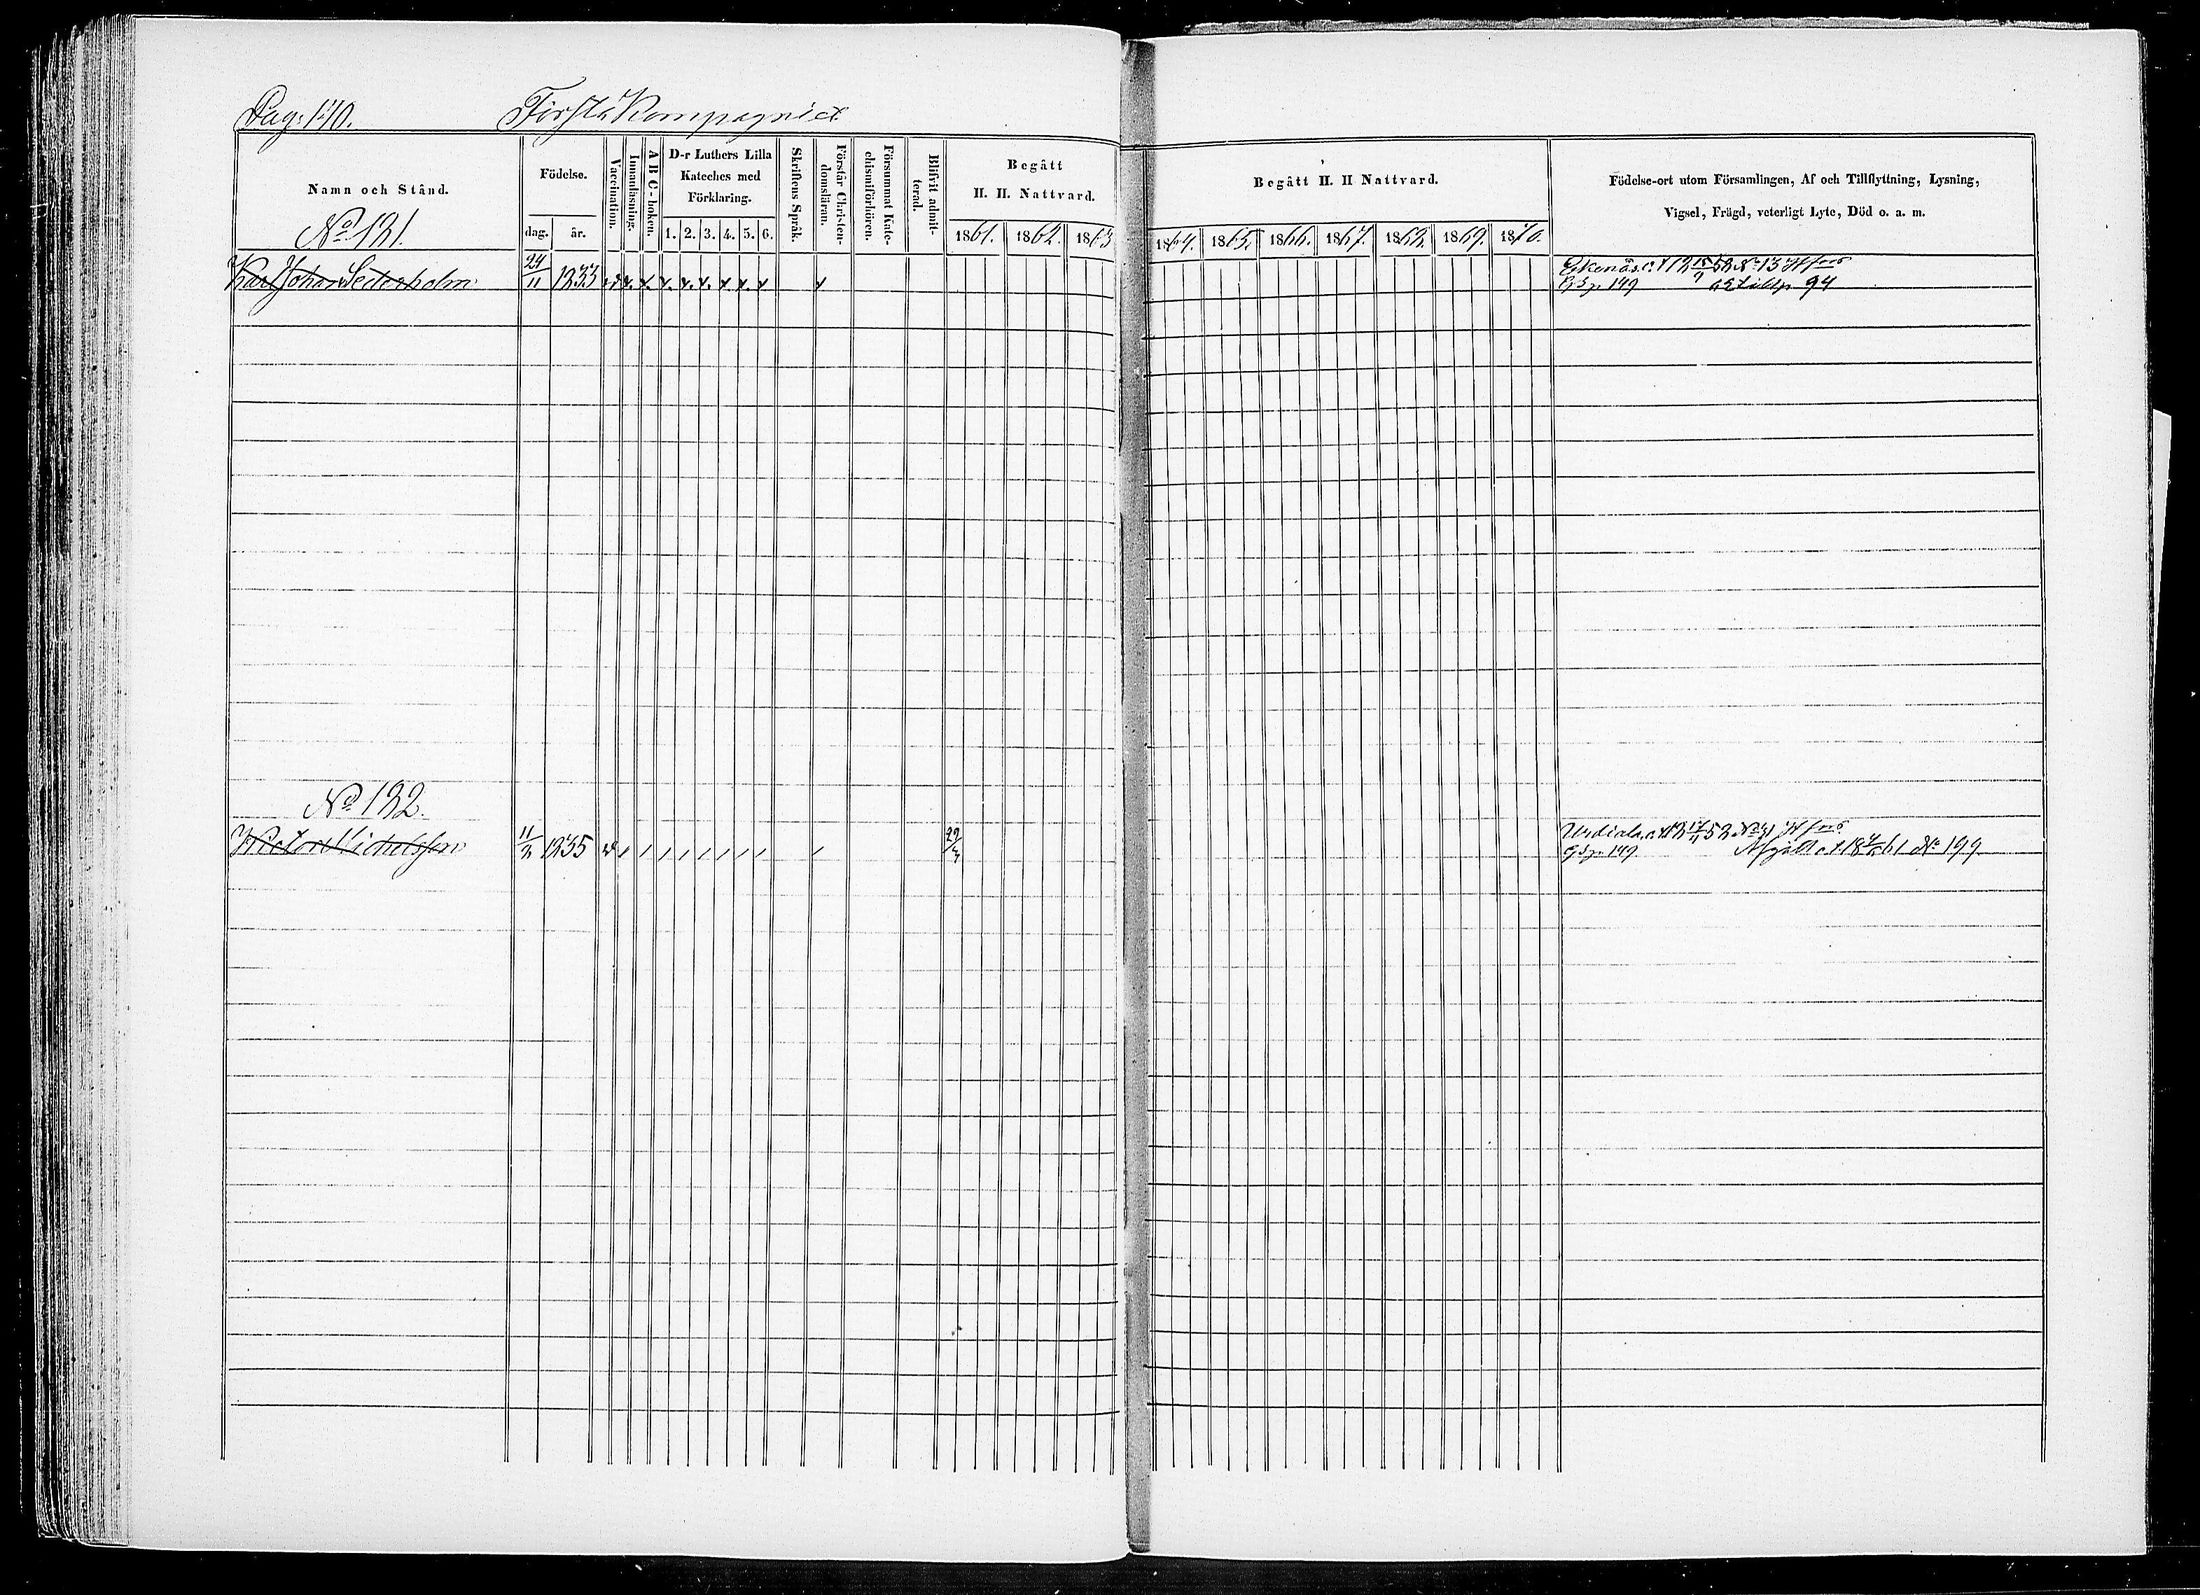 Pag: 140. Första Kompagniet
Namn och Stånd.
Födelse.
dag. år.
Vaccination.
Innanläsning.
A B C-boken.
D-r Luthers Lilla
Kateches med
Förklaring.
1. 2. 3. 4. 5. 6.
Skriftens Språk.
Förstår Christen-
domsläran.
Försummat Kate-
chismiförhören.
Blifvit admit-
terad.
Begått
H. H. Nattvard.
1861. 1862. 1863
Begått H. H Nattvard.
1864. 1865. 1866. 1867. 1868. 1869. 1870.
Födelse-ort utom Församlingen, Af och Tillflyttning, Lysning,
Vigsel, Frägd, veterligt Lyte, Död o. a. m.
No 131.
Karl Johan Sederholm 24/11 1833
Ekenäs. 15/9 58 No 13 Hfors
p 149 94
No 132.
Wictor Michelsson 11/2 1835 22/7
Urdiala 58 Hfors
p. 149 Afgått 61 No 199